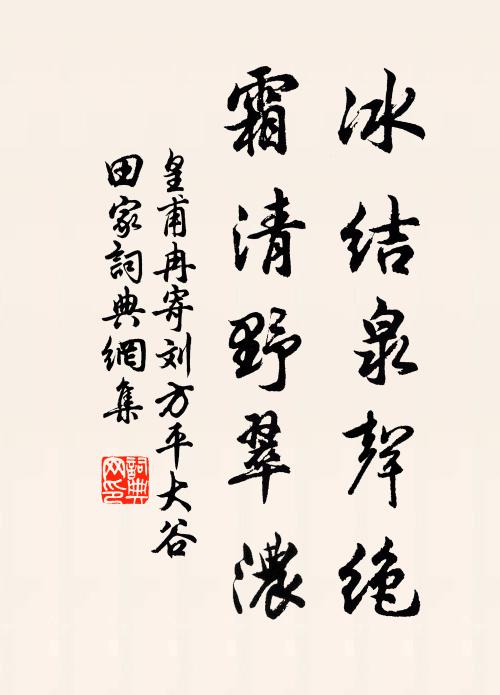 冰结泉聲絶
霜清野翠濃
皇甫冉寄刘方平大谷
田家詞典網集
詞典
网印